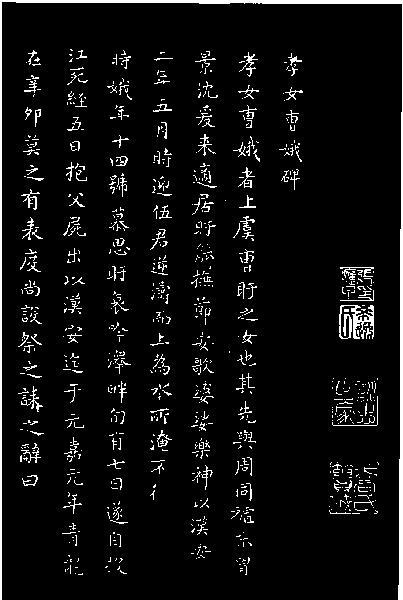 孝女曹娥碑
孝女曹娥者上虞曹盱之女也其先與周同祖末胄
景沈爰来適居盱能撫節安歌婆娑樂神以漢安
二年五月時迎伍君逆濤而上為水所淹不
時娥年十四號慕思盱哀吟澤畔旬有七日遂自投
江死經五日抱父屍出以漢安迄于元嘉元年青龍
在辛卯莫之有表度尚設祭之誄之辭曰